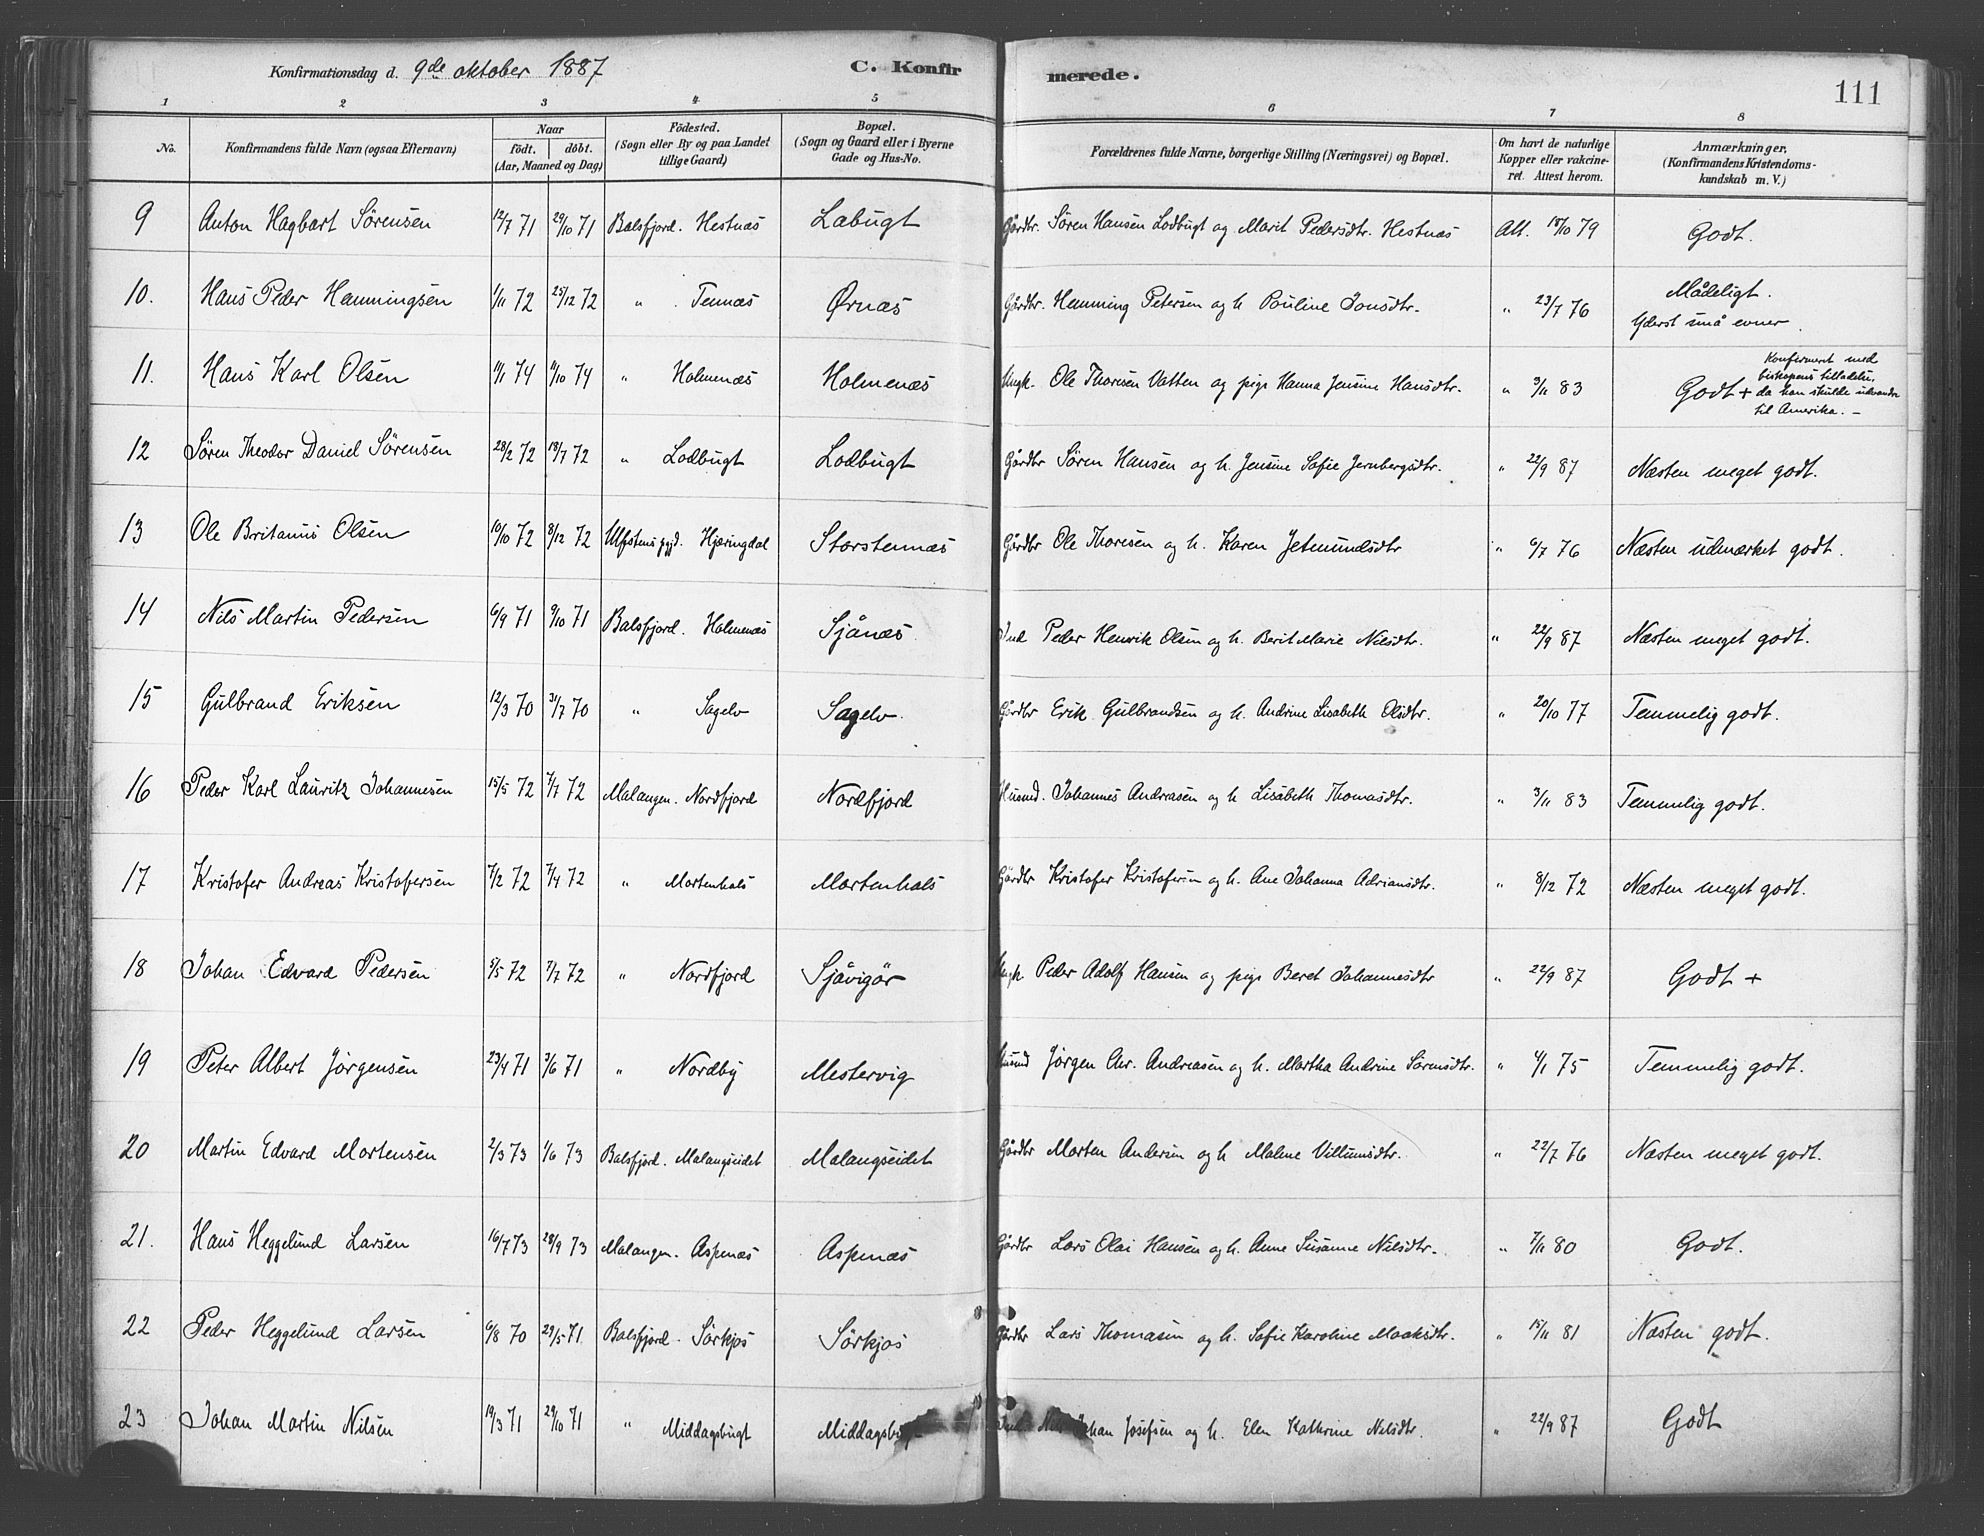 Konfirmationsdag d. 9de oktober 1887 C. Konfirmerede. 111
1 2 3 4 5 6 7 8
No. Konfirmandens fulde Navn (ogsaa Efternavn) Naar født. døbt. (Aar, Maaned og Dag) Fødested. (Sogn eller By og paa Landet tillige Gaard) Bopæl. (Sogn og Gaard eller i Byerne Gade og Hus-No. Forældrenes fulde Navne, borgerlige Stilling (Næringsvei) og Bopæl. Om havt de naturlige Kopper eller vakcineret. Attest herom. Anmærkninger. (Konfirmandens Kristendomskundskab m. V.)
9 Anton Hagbart Sørensen 12/7 71 29/10 71 Balsfjord. Hestnæs Labugt Gårdbr. Søren Hansen Lodbugt og Marit Pedersdtr. Hestnæs Att. 18/10 79 Godt.
10. Hans Peder Henningsen 1/11 72 25/12 72 " Tennæs Ørnæs Gårdbr. Henning Petersen og h. Pouline Jonsdtr. " 23/7 76 Mådeligt. Yderst små evner.
11. Hans Karl Olsen 11/1 74 11/10 74 " Holmenæs Holmenæs Ungk. Ole Thoresen Vatten og pige Hanna Jensine Hansdtr. " 3/11 83 Godt + Konfirmeret med biskopens tilladelse, da han skulde udvandre til Amerika. –
12 Søren Theodor Daniel Sørensen 28/2 72 18/7 72 " Lodbugt Lodbugt Gårdbr Søren Hansen og h. Jensine Sofie Jernbergsdtr. " 22/9 87 Næsten meget godt.
13 Ole Britanus Olsen 10/10 72 8/12 72 Ulfstens pgjd. Hjæringdal Storstennæs Gårdbr Ole Thoresen og h. Karen Jetmundsdtr " 6/7 76 Næsten udmærket godt.
14 Nils Martin Pedersen 6/9 71 9/10 71 Balsfjord. Holmenæs Sjånæs Ind Peder Henrik Olsen og h. Berit Marie Nilsdtr. " 22/9 87 Næsten meget godt.
15 Gulbrand Eriksen 12/3 70 3/7 70 " Sagelv Sagelv. Gårdbr Erik Gulbrandsen og h. Andrine Lisabeth Olsdtr. " 20/10 77 Temmelig godt.
16 Peder Karl Lauritz Johannesen 15/5 72 7/7 72 Malangen. Nordfjord Nordfjord Husmd. Johannes Andreasen og h Lisabeth Thomasdtr. " 3/11 83 Temmelig godt.
17 Kristofer Andreas Kristofersen 7/2 72 7/4 72 " Mortenhals Mortenhals Gårdbr Kristofer Kristofersen og h. Ane Johanna Adriansdtr. " 8/12 72 Næsten meget godt.
18 Johan Edvard Pedersen 5/5 72 7/7 72 " Nordfjord Sjåvigør Ungk Peder Adolf Hansen og pige Beret Johannesdtr " 22/9 87 Godt +
19 Peter Albert Jørgensen 23/4 71 3/6 71 " Nordby Mestervig Husmd Jørgen Chr. Andreasen og h. Martha Andrine Sørensdtr. " 4/1 75 Temmelig godt.
20 Martin Edvard Mortensen 2/3 73 1/6 73 Balsfjord. Malangseidet Malangseidet Gårdbr Morten Andersen og h. Malene Villumsdtr. " 22/7 76 Næsten meget godt.
21. Hans Heggelund Larsen 16/7 73 28/9 73 Malangen. Aspenæs Aspenæs Gårdbr Lars Olai Hansen og h. Anne Susanne Nilsdtr. " 7/11 80 Godt.
22 Peder Heggelund Larsen 6/8 70 29/5 71 Balsfjord. Sørkjos Sørkjos Gårdbr Lars Thomasen og h. Sofie Karoline Maaksdtr. " 15/11 81 Næsten godt.
23 Johan Martin Nilsen 19/3 71 29/10 71 " Middagsbugt Middagsbugt Johan Josefsen og h. Elen Kathrine Nilsdtr. " 22/9 87 Godt